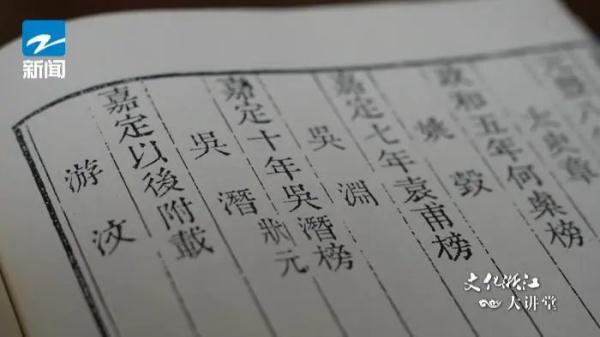 新闻
政和五年何㮚榜
姚
嘉定七年袁甫榜
吳淵
嘉定十年吳潛榜狀元
吳潛
嘉定以後附載
游汶
文化浙江
大讲堂